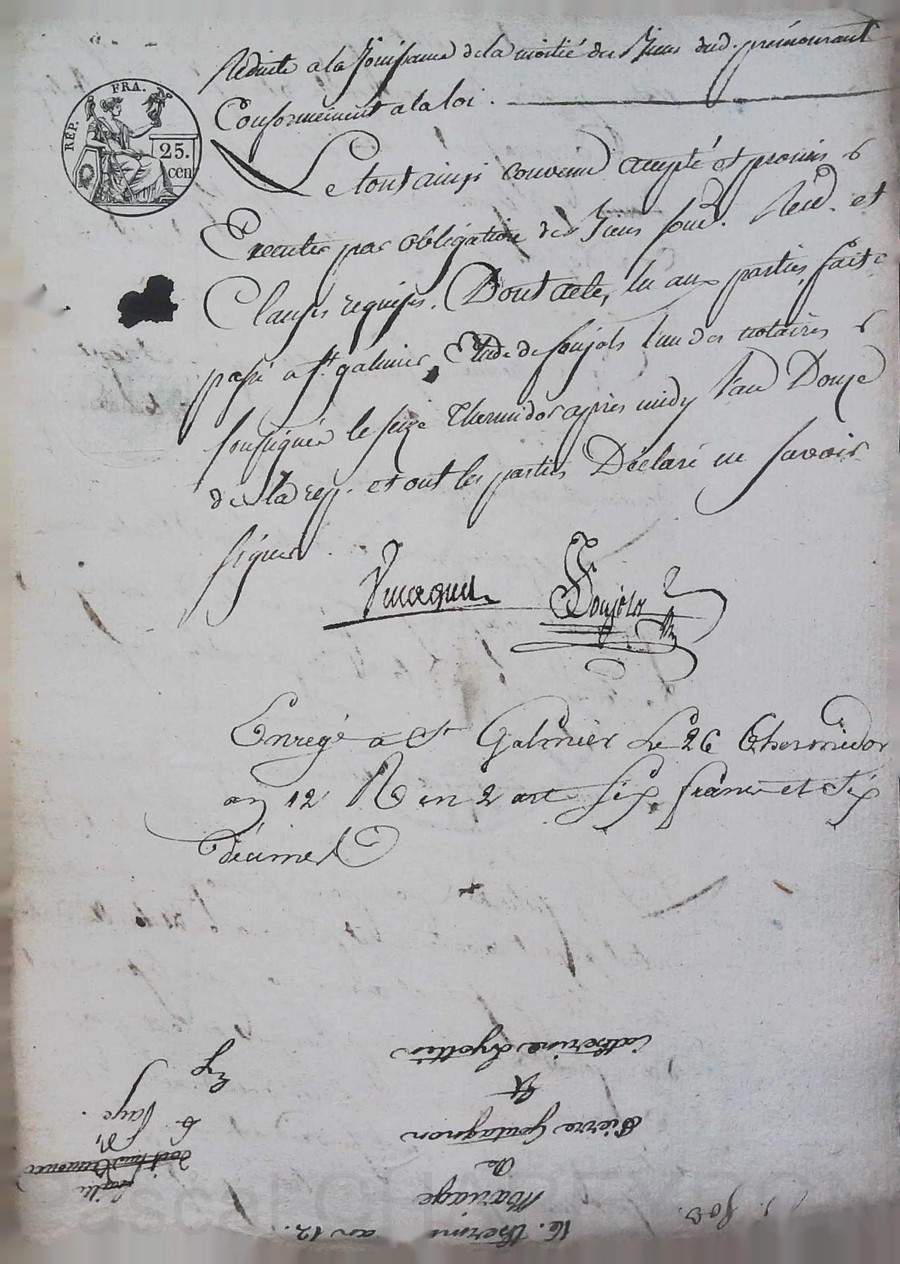 REP. FRA.
25. cen
Reduite a la Jouissance de la moitié des Biens dud. prémourant
Conformement a la loi.
Le tout ainsi convenu accepté et promis
Executer par obligation des Biens soud. Rend. et
Clauses requises. Dont acte, lu aux parties, fait &
passé a St. galmier, Etude de soujols l'un des notaires
soussignés le seize Thermidor après midy l'an Douze
de la rep. et ont les parties Déclaré ne savoir
signer.
Soujols
Enregé a St Galmier Le 26 Thermidor
an 12 R en 2 art Six francs et Six
décimes
16. thermr an 12.
Mariage
De
Pierre Goutagnon
Et
Catherine Lyottier
Exp